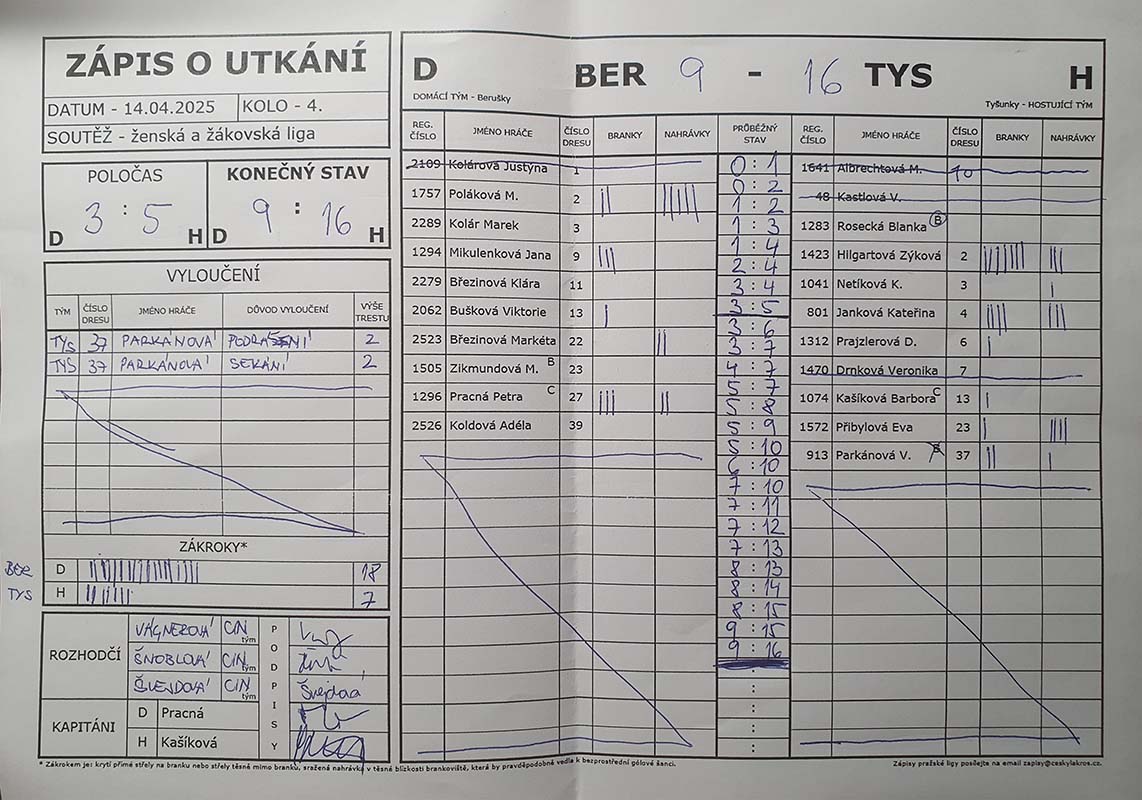 ZÁPIS O UTKÁNÍ
DATUM - 14.04.2025 KOLO - 4.
SOUTĚŽ - ženská a žákovská liga
POLOČAS KONEČNÝ STAV
3 : 5 9 : 16
D H D H
VYLOUČENÍ
TÝM ČÍSLO DRESU JMÉNO HRÁČE DŮVOD VYLOUČENÍ VÝŠE TRESTU
TYS 37 PARKÁNOVÁ PODRÁŽENÍ 2
TYS 37 PARKÁNOVÁ SEKÁNÍ 2
ZÁKROKY*
BER D 18
TYS H 7
ROZHODČÍ
VÁGNEROVÁ CIN tým
ŠNOBLOVÁ CIN tým
ŠVEJDOVÁ CIN tým Švejdová
PODPISY
KAPITÁNI
D Pracná
H Kašíková
D BER 9 - 16 TYS H
DOMÁCÍ TÝM - Berušky Tyšunky - HOSTUJÍCÍ TÝM
REG. ČÍSLO JMÉNO HRÁČE ČÍSLO DRESU BRANKY NAHRÁVKY
2109 Kolárová Justyna 1
1757 Poláková M. 2
2289 Kolár Marek 3
1294 Mikulenková Jana 9
2279 Březinová Klára 11
2062 Bušková Viktorie 13
2523 Březinová Markéta 22
1505 Zikmundová M. B 23
1296 Pracná Petra C 27
2526 Koldová Adéla 39
PRŮBĚŽNÝ STAV
0 : 1
0 : 2
1 : 2
1 : 3
1 : 4
2 : 4
3 : 4
3 : 5
3 : 6
3 : 7
4 : 7
5 : 7
5 : 8
5 : 9
5 : 10
6 : 10
7 : 10
7 : 11
7 : 12
7 : 13
8 : 13
8 : 14
8 : 15
9 : 15
9 : 16
:
:
:
:
REG. ČÍSLO JMÉNO HRÁČE ČÍSLO DRESU BRANKY NAHRÁVKY
1641 Albrechtová M. 10
48 Kastlová V.
1283 Rosecká Blanka B
1423 Hilgartová Zýková 2
1041 Netíková K. 3
801 Janková Kateřina 4
1312 Prajzlerová D. 6
1470 Drnková Veronika 7
1074 Kašíková Barbora C 13
1572 Přibylová Eva 23
913 Parkánová V. B 37
* Zákrokem je: krytí přímé střely na branku nebo střely těsně mimo branku, sražená nahrávka v těsné blízkosti brankoviště, která by pravděpodobně vedla k bezprostřední gólové šanci.
Zápisy pražské ligy posílejte na email zapisy@ceskylakros.cz.